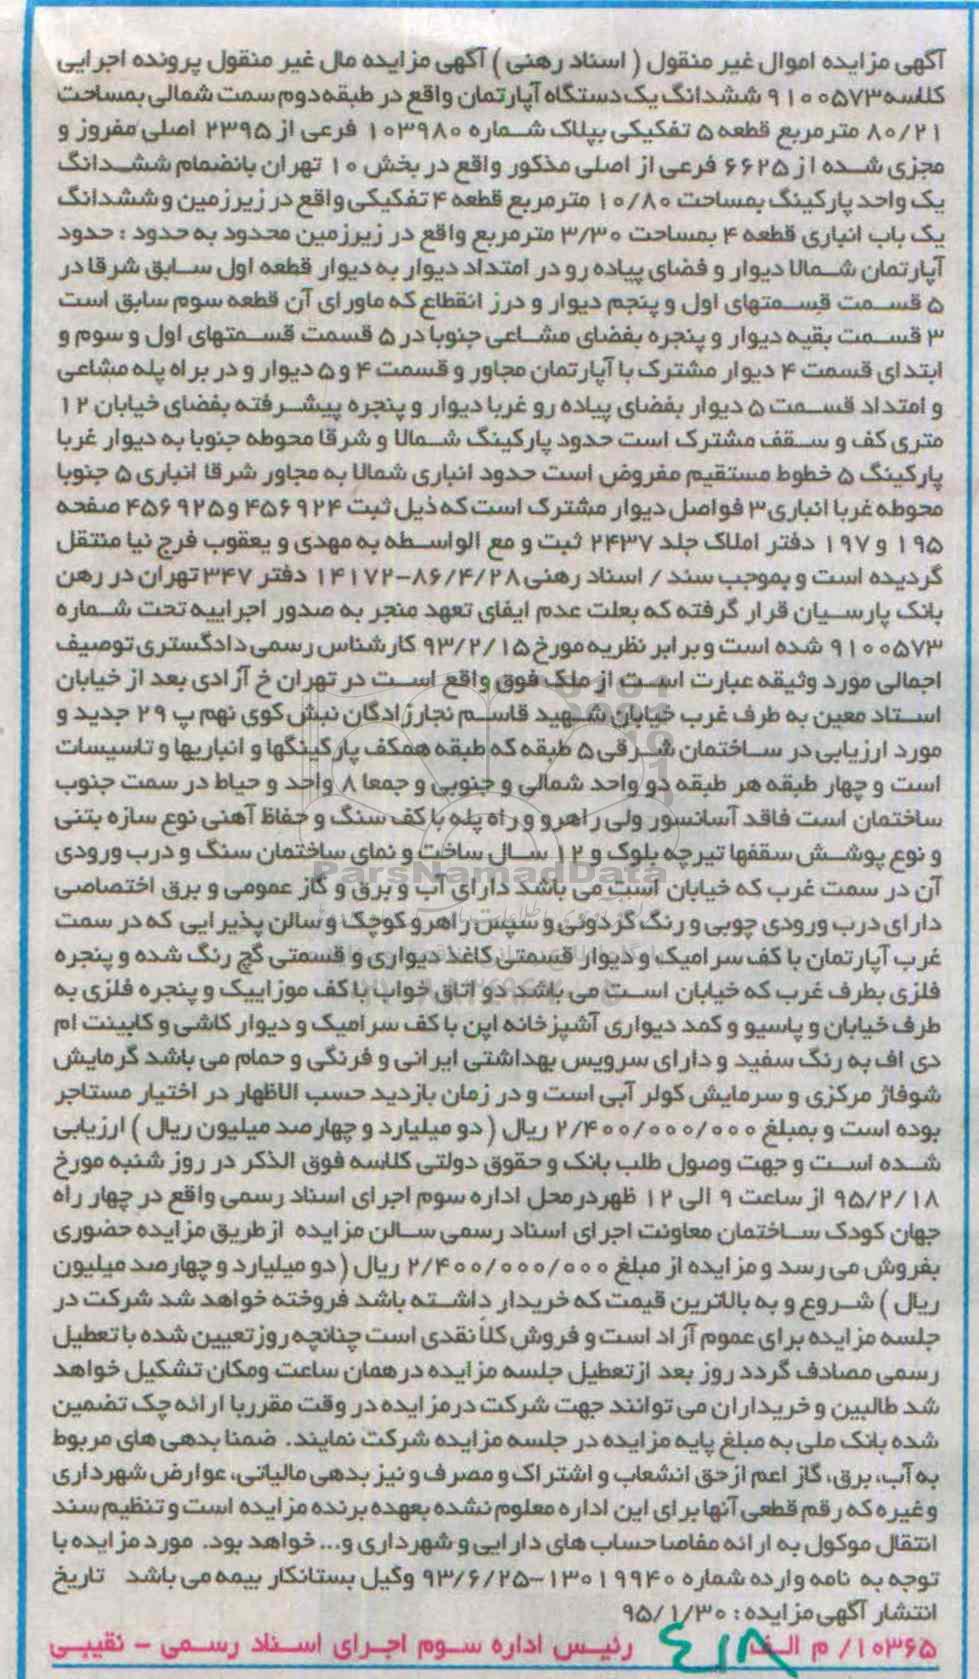 آگهی مزایده اموال غیر منقول ( اسناد رهنی ) آگهی مزایده مال غیر منقول پرونده اجرایی
کلاسه ۹۱۰۰۵۷۳ ششدانگ یک دستگاه آپارتمان واقع در طبقه دوم سمت شمالی بمساحت
۸۰/۲۱ مترمربع قطعه ۵ تفکیکی بپلاک شماره ۱۰۳۹۸۰ فرعی از ۲۳۹۵ اصلی مفروز و
مجزی شده از ۶۶۲۵ فرعی از اصلی مذکور واقع در بخش ۱۰ تهران بانضمام ششدانگ
یک واحد پارکینگ بمساحت ۱۰/۸۰ مترمربع قطعه ۴ تفکیکی واقع در زیرزمین و ششدانگ
یک باب انباری قطعه ۴ بمساحت ۳/۳۰ مترمربع واقع در زیرزمین محدود به حدود : حدود
آپارتمان شمالا دیوار و فضای پیاده رو در امتداد دیوار به دیوار قطعه اول سابق شرقا در
۵ قسمت قسمتهای اول و پنجم دیوار و درز انقطاع که ماورای آن قطعه سوم سابق است
۳ قسمت بقیه دیوار و پنجره بفضای مشاعی جنوبا در ۵ قسمت قسمتهای اول و سوم و
ابتدای قسمت ۴ دیوار مشترک با آپارتمان مجاور و قسمت ۴ و ۵ دیوار و در براه پله مشاعی
و امتداد قسمت ۵ دیوار بفضای پیاده رو غربا دیوار و پنجره پیشرفته بفضای خیابان ۱۲
متری کف و سقف مشترک است حدود پارکینگ شمالا و شرقا محوطه جنوبا به دیوار غربا
پارکینگ ۵ خطوط مستقیم مفروض است حدود انباری شمالا به مجاور شرقا انباری ۵ جنوبا
محوطه غربا انباری ۳ فواصل دیوار مشترک است که ذیل ثبت ۴۵۶۹۲۴ و ۴۵۶۹۲۵ صفحه
۱۹۵ و ۱۹۷ دفتر املاک جلد ۲۴۳۷ ثبت و مع الواسطه به مهدی و یعقوب فرج نیا منتقل
گردیده است و بموجب سند / اسناد رهنی ۸۶/۴/۲۸-۱۴۱۷۲ دفتر ۳۴۷ تهران در رهن
بانک پارسیان قرار گرفته که بعلت عدم ایفای تعهد منجر به صدور اجراییه تحت شماره
۹۱۰۰۵۷۳ شده است و برابر نظریه مورخ ۹۳/۲/۱۵ کارشناس رسمی دادگستری توصیف
اجمالی مورد وثیقه عبارت است از ملک فوق واقع است در تهران خ آزادی بعد از خیابان
استاد معین به طرف غرب خیابان شهید قاسم نجارزادگان نبش کوی نهم پ ۲۹ جدید و
مورد ارزیابی در ساختمان شرقی ۵ طبقه که طبقه همکف پارکینگها و انباریها و تاسیسات
است و چهار طبقه هر طبقه دو واحد شمالی و جنوبی و جمعا ۸ واحد و حیاط در سمت جنوب
ساختمان است فاقد آسانسور ولی راهرو و راه پله با کف سنگ و حفاظ آهنی نوع سازه بتنی
و نوع پوشش سقفها تیرچه بلوک و ۱۲ سال ساخت و نمای ساختمان سنگ و درب ورودی
آن در سمت غرب که خیابان است می باشد دارای آب و برق و گاز عمومی و برق اختصاصی
دارای درب ورودی چوبی و رنگ گردوئی و سپس راهرو کوچک و سالن پذیرایی که در سمت
غرب آپارتمان با کف سرامیک و دیوار قسمتی کاغذ دیواری و قسمتی گچ رنگ شده و پنجره
فلزی بطرف غرب که خیابان است می باشد دو اتاق خواب با کف موزاییک و پنجره فلزی به
طرف خیابان و پاسیو و کمد دیواری آشپزخانه اپن با کف سرامیک و دیوار کاشی و کابینت ام
دی اف به رنگ سفید و دارای سرویس بهداشتی ایرانی و فرنگی و حمام می باشد گرمایش
شوفاژ مرکزی و سرمایش کولر آبی است و در زمان بازدید حسب الاظهار در اختیار مستاجر
بوده است و بمبلغ ۲/۴۰۰/۰۰۰/۰۰۰ ریال ( دو میلیارد و چهارصد میلیون ریال ) ارزیابی
شده است و جهت وصول طلب بانک و حقوق دولتی کلاسه فوق الذکر در روز شنبه مورخ
۹۵/۲/۱۸ از ساعت ۹ الی ۱۲ ظهر در محل اداره سوم اجرای اسناد رسمی واقع در چهار راه
جهان کودک ساختمان معاونت اجرای اسناد رسمی سالن مزایده ازطریق مزایده حضوری
بفروش می رسد و مزایده از مبلغ ۲/۴۰۰/۰۰۰/۰۰۰ ریال ( دو میلیارد و چهارصد میلیون
ریال ) شروع و به بالاترین قیمت که خریدار داشته باشد فروخته خواهد شد شرکت در
جلسه مزایده برای عموم آزاد است و فروش کلاً نقدی است چنانچه روز تعیین شده با تعطیل
رسمی مصادف گردد روز بعد از تعطیل جلسه مزایده در همان ساعت ومکان تشکیل خواهد
شد طالبین و خریداران می توانند جهت شرکت در مزایده در وقت مقرر با ارائه چک تضمین
شده بانک ملی به مبلغ پایه مزایده در جلسه مزایده شرکت نمایند. ضمنا بدهی های مربوط
به آب، برق، گاز اعم از حق انشعاب و اشتراک و مصرف و نیز بدهی مالیاتی، عوارض شهرداری
و غیره که رقم قطعی آنها برای این اداره معلوم نشده بعهده برنده مزایده است و تنظیم سند
انتقال موکول به ارائه مفاصا حساب های دارایی و شهرداری و... خواهد بود. مورد مزایده با
توجه به نامه وارده شماره ۱۳۰۱۹۹۴۰-۹۳/۶/۲۵ وکیل بستانکار بیمه می باشد تاریخ
انتشار آگهی مزایده : ۹۵/۱/۳۰
۱۰۳۶۵/ م الف رئیس اداره سوم اجرای اسناد رسمی - نقیبی
ParsNamadData